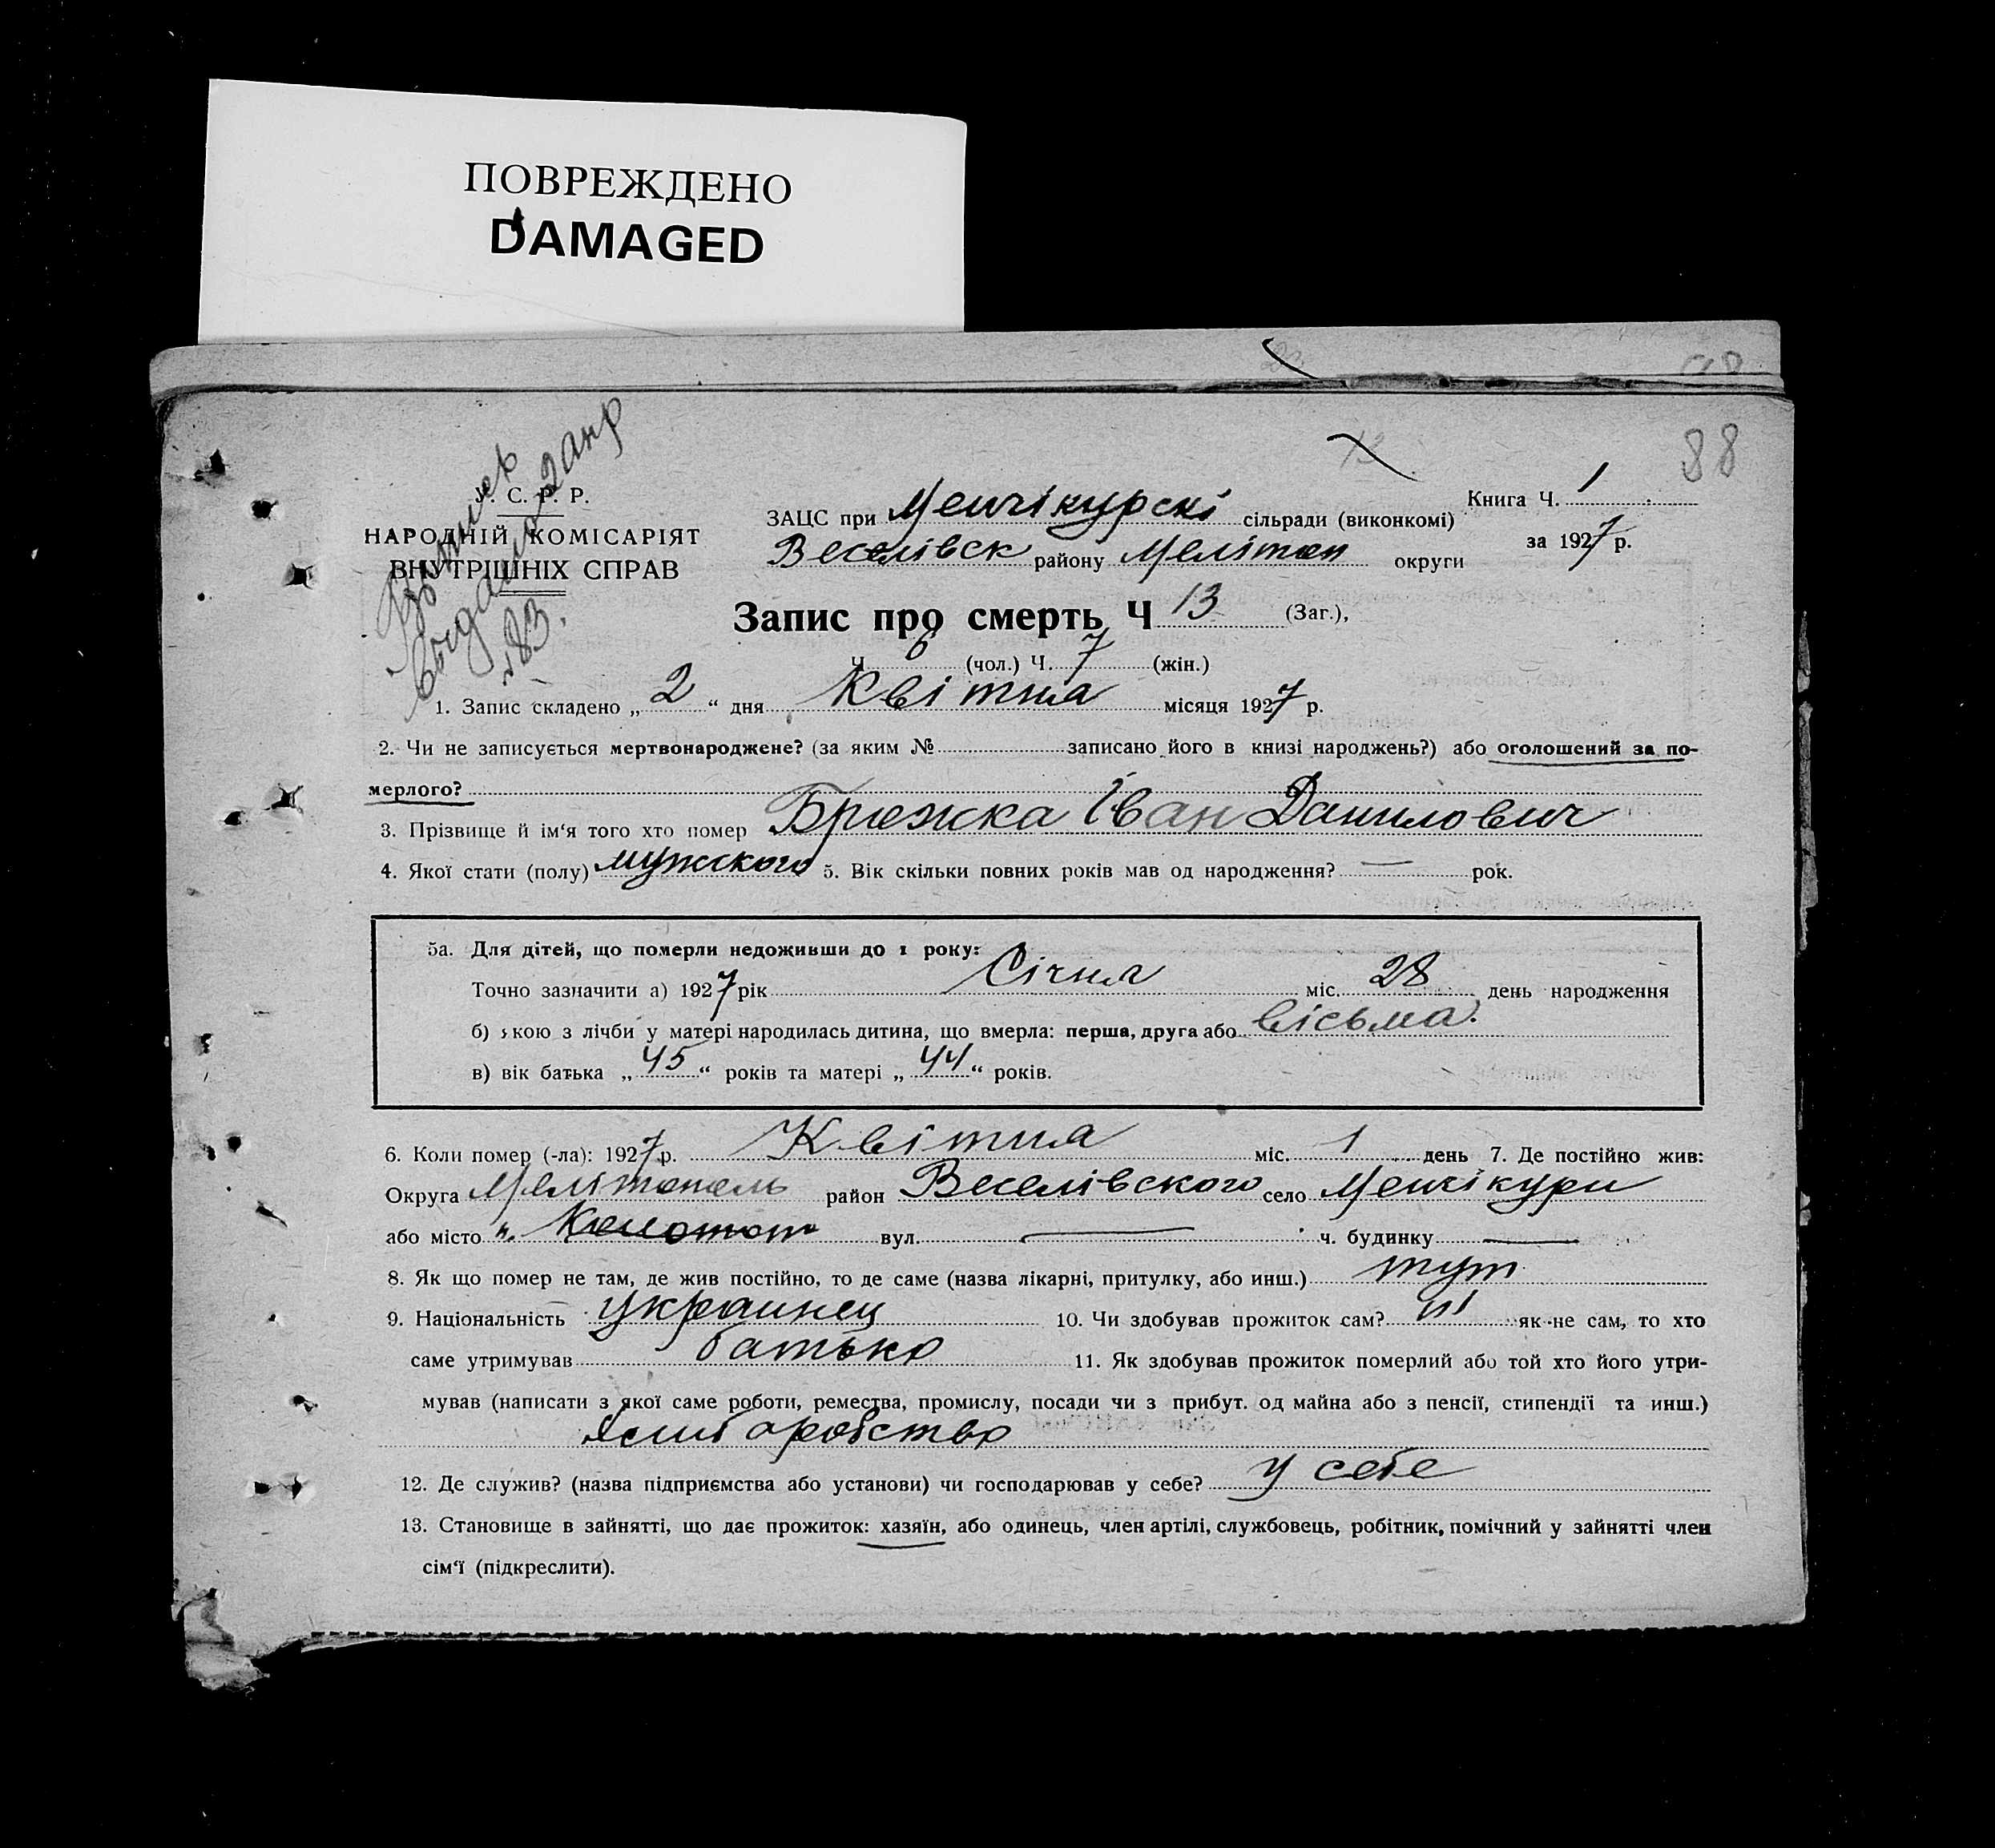 ПОВРЕЖДЕНО
DAMAGED
88
У. С. Р. Р.
НАРОДНІЙ КОМІСАРІЯТ
ВНУТРІШНІХ СПРАВ
Книга Ч. 1
за 1927 р.
ЗАЦС при Менчікурскі сільради (виконкомі)
Веселівск району Мелітоп округи
Запис про смерть Ч 13 (Заг.),
Ч 6 (чол.) Ч. 7 (жін.)
1. Запис складено „ 2 “ дня Квітня місяця 1927 р.
2. Чи не записується мертвонароджене? (за яким № записано його в книзі народжень?) або оголошений за по-
мерлого?
3. Прізвище й ім‘я того хто помер Бряжка Іван Данилович
4. Якої стати (полу) мужского 5. Вік скільки повних років мав од народження? — рок.
5а. Для дітей, що померли недоживши до 1 року:
Точно зазначити а) 1927 рік Січня міс. 28 день народження
б) якою з лічби у матері народилась дитина, що вмерла: перша, друга або вісьма.
в) вік батька „ 45 “ років та матері „ 44 “ років.
6. Коли помер (-ла): 1927 р. Квітня міс. 1 день 7. Де постійно жив:
Округа Мелітополь район Веселівского село Менчікури
або місто вул. — ч. будинку —
8. Як що помер не там, де жив постійно, то де саме (назва лікарні, притулку, або инш.) тут
9. Національність украинец 10. Чи здобував прожиток сам? ні як не сам, то хто
саме утримував батько 11. Як здобував прожиток померлий або той хто його утри-
мував (написати з якої саме роботи, ремества, промислу, посади чи з прибут. од майна або з пенсії, стипендії та инш.)
12. Де служив? (назва підприємства або установи) чи господарював у себе? у себе
13. Становище в зайнятті, що дає прожиток: хазяїн, або одинець, член артілі, службовець, робітник, помічний у зайнятті член
сім‘ї (підкреслити).